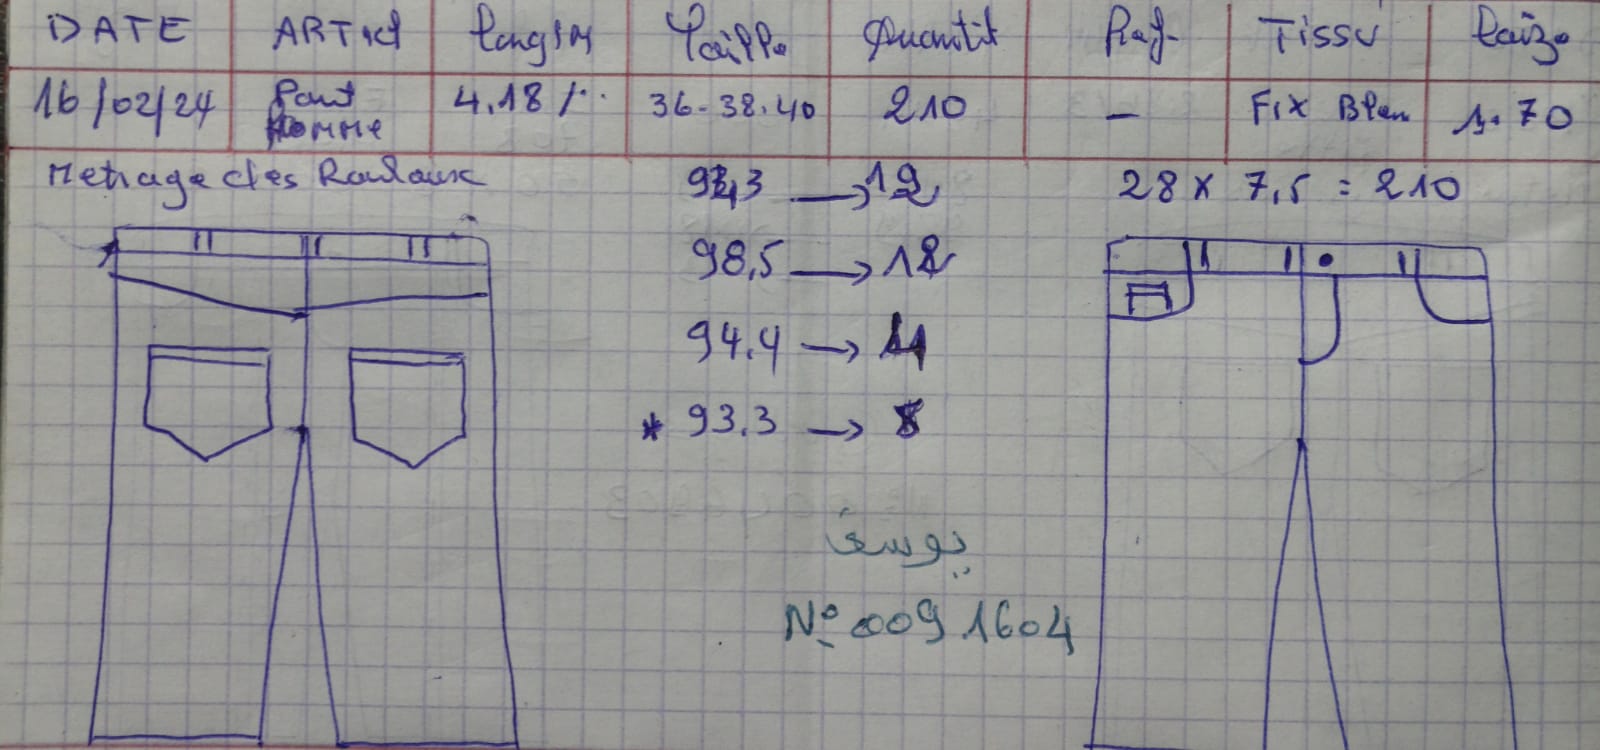 DATE ARTicl Longeur Taille Quantit Ref- Tissu Laize
16/02/24 Pant Homme 4.18 36-38-40 210 — Fix Blan 1.70
Metrage des Rouleaux → 12 28 x 7,5 = 210
98,5 → 12
94.4 → 11
* 93.3 →
يوسف
N° 0091604